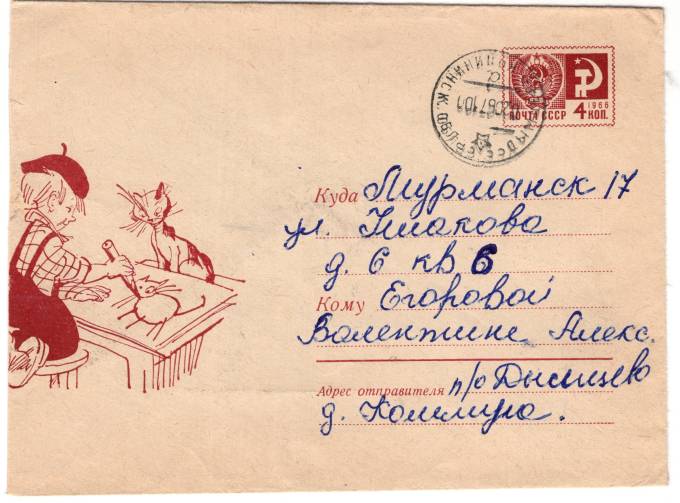 1966
ПОЧТА СССР 4 КОП.
Куда Мурманск 17
ул. Ушакова
д. 6 кв 6
Кому Егоровой
Валентине Алекс.
Адрес отправителя п/о Дысищево
д.